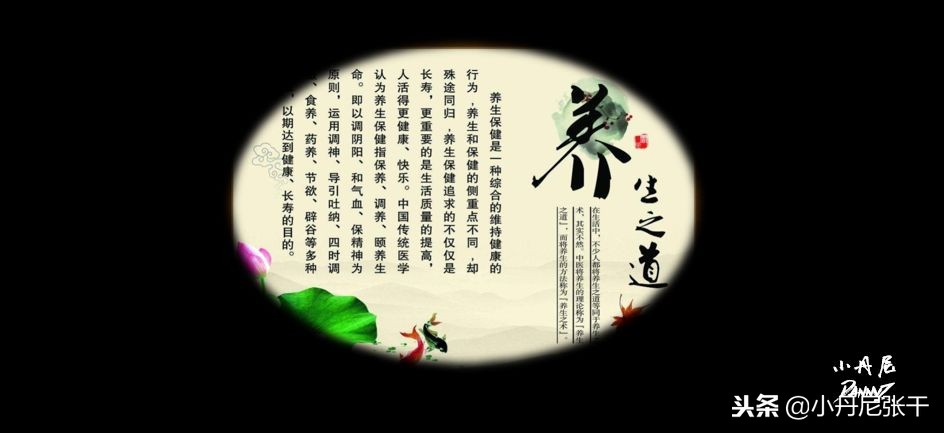 养生之道
在生活中，不少人都将养生之道等同于养生
术，其实不然。中医将养生的理论称为『养生
之道』，而将养生的方法称为『养生之术』。
养生保健是一种综合的维持健康的
行为,养生和保健的侧重点不同,却
殊途同归,养生保健追求的不仅仅是
长寿，更重要的是生活质量的提高，
人活得更健康、快乐。中国传统医学
认为养生保健指保养、调养、颐养生
命。即以调阴阳、和气血、保精神为
原则，运用调神、导引吐纳、四时调
、食养、药养、节欲、辟谷等多种
，以期达到健康、长寿的目的。
小丹尼
DANNZ
头条 @小丹尼张干